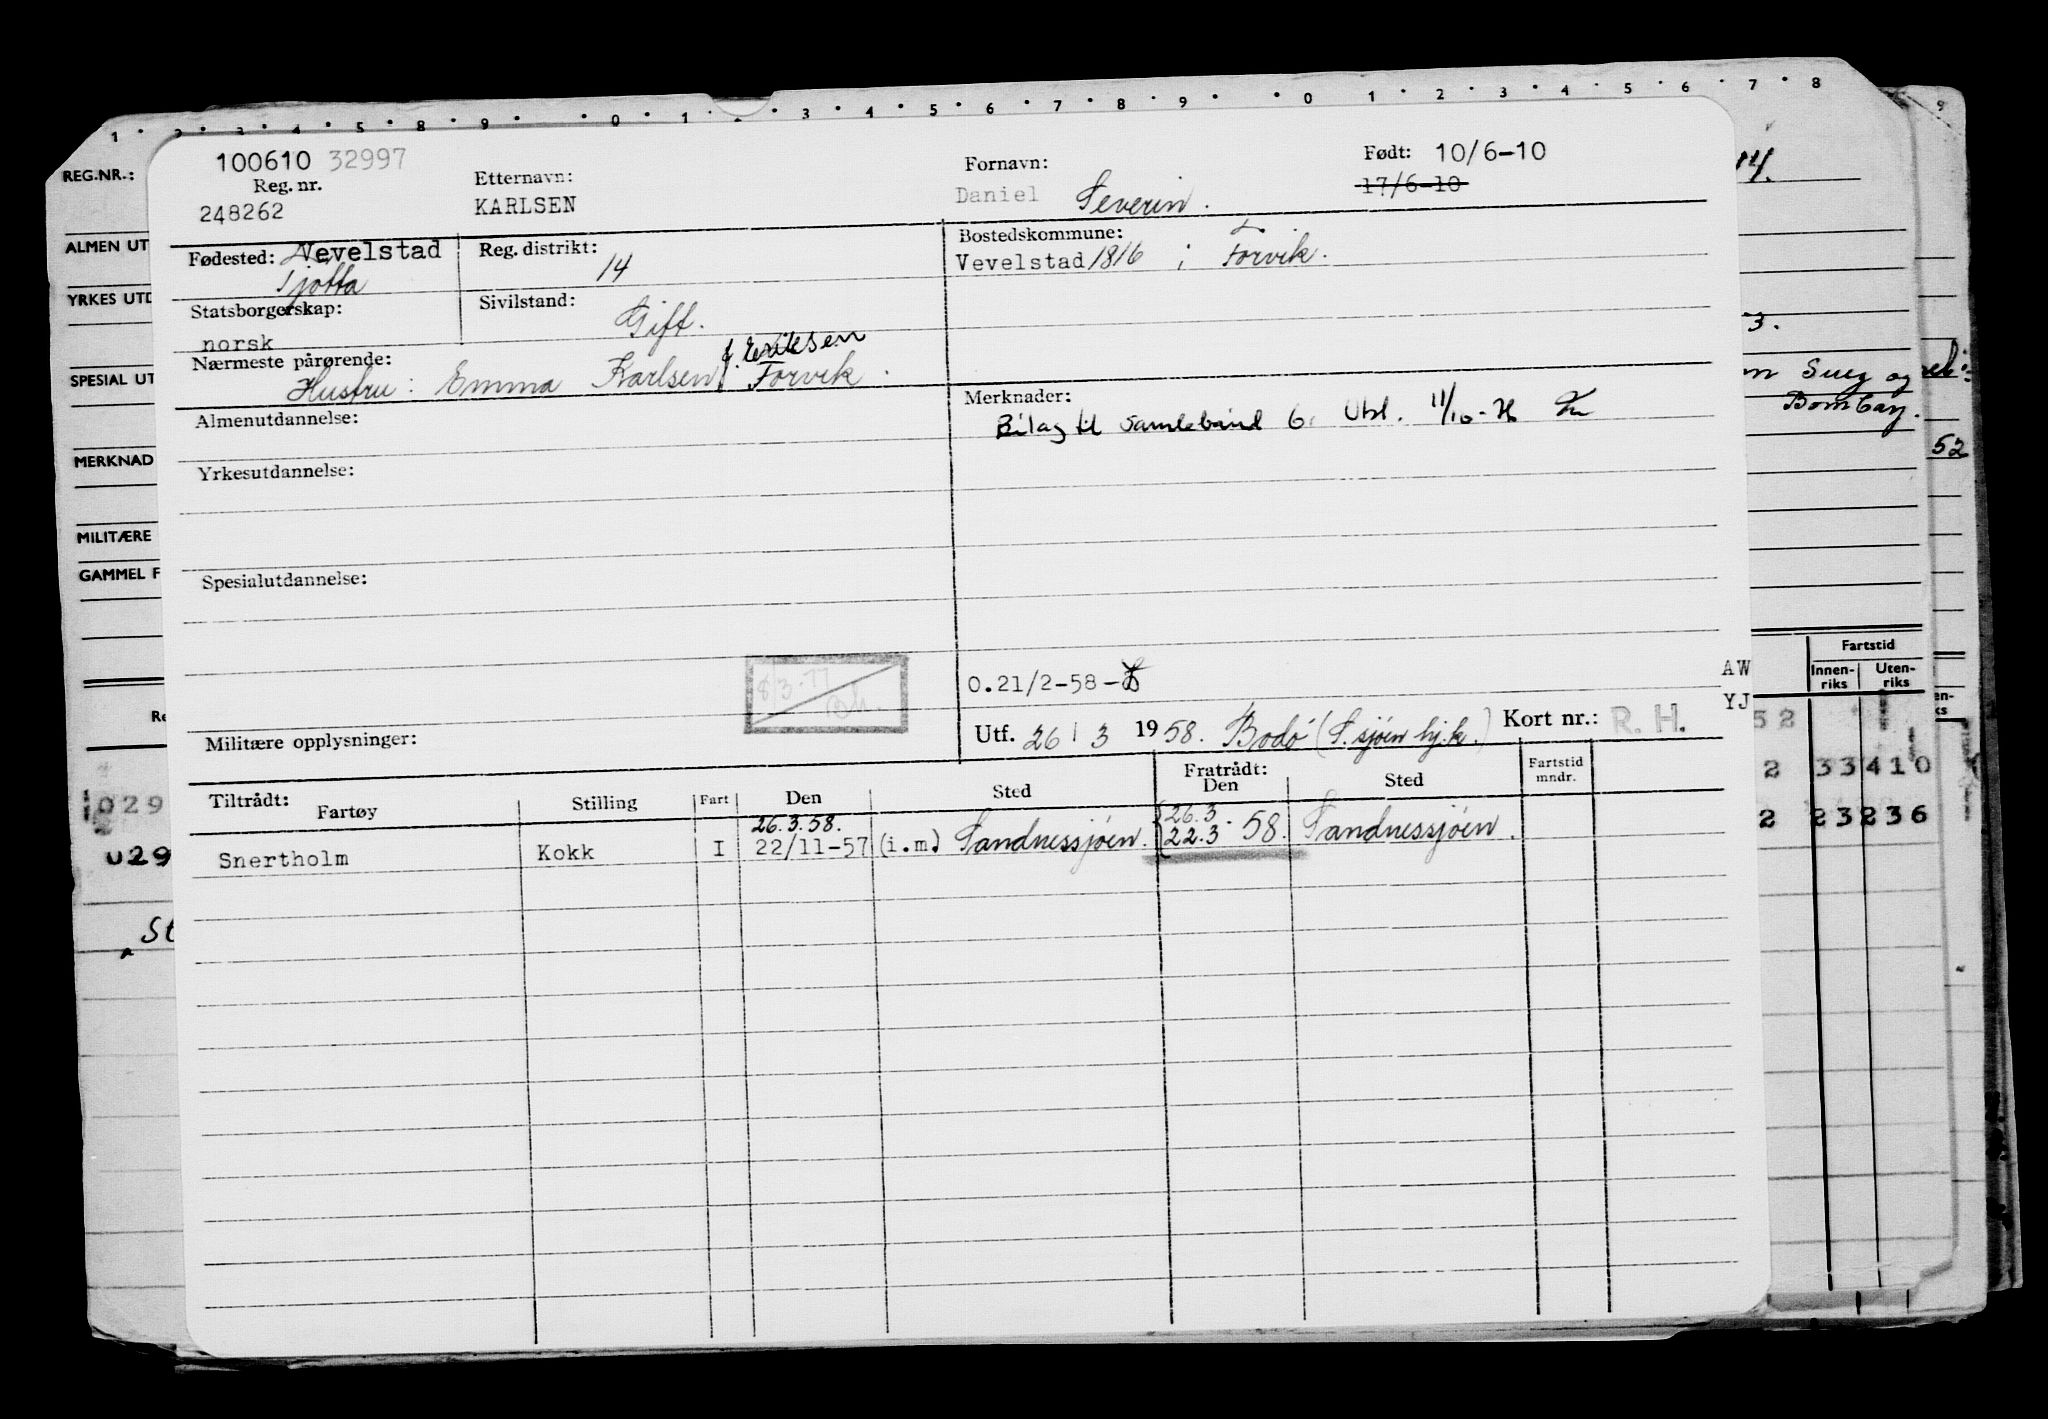 1 2 3 4 5 8 9 0 1 3 4 5 6 7 8 9 0 1 2 3 4 5 6 7 8 9
REG.NR.:
100610 32997
Reg. nr.
248262
Etternavn:
KARLSEN
Fornavn:
Daniel Severin.
Født: 10/6-10
17/6-10
Fødested: Vevelstad
Tjøtta
Reg. distrikt:
14
Bostedskommune:
Vevelstad 1816 i Forvik.
Statsborgerskap:
norsk
Sivilstand:
Gift.
Nærmeste pårørende:
f. Eriksen
Hustru: Emma Karlsen, Forvik.
Almenutdannelse:
Merknader:
Bilag til samlebånd 6. Utbl. 11/10-76
Yrkesutdannelse:
Spesialutdannelse:
8/3-77
Militære opplysninger:
0.21/2-58-
Utf. 26/3 1958. Bodö (S.sjöen hj.k.) Kort nr.: R. H.
AW
YJ
Tiltrådt: Fartøy Stilling Fart Den Sted Fratrådt: Den Sted Fartstid mndr.
26.3.58. 26.3
Snertholm Kokk I 22/11-57 (i.m.) Sandnessjöen. 22.3 - 58. Sandnessjöen.
ALMEN UT
YRKES UTD
SPESIAL UT
MERKNAD
MILITÆRE
GAMMEL F
Re
029
029
St
3.
n Suez og
Bombay.
52
Fartstid
Innen-
riks
Uten-
riks
52
2 33 410
2 23 236